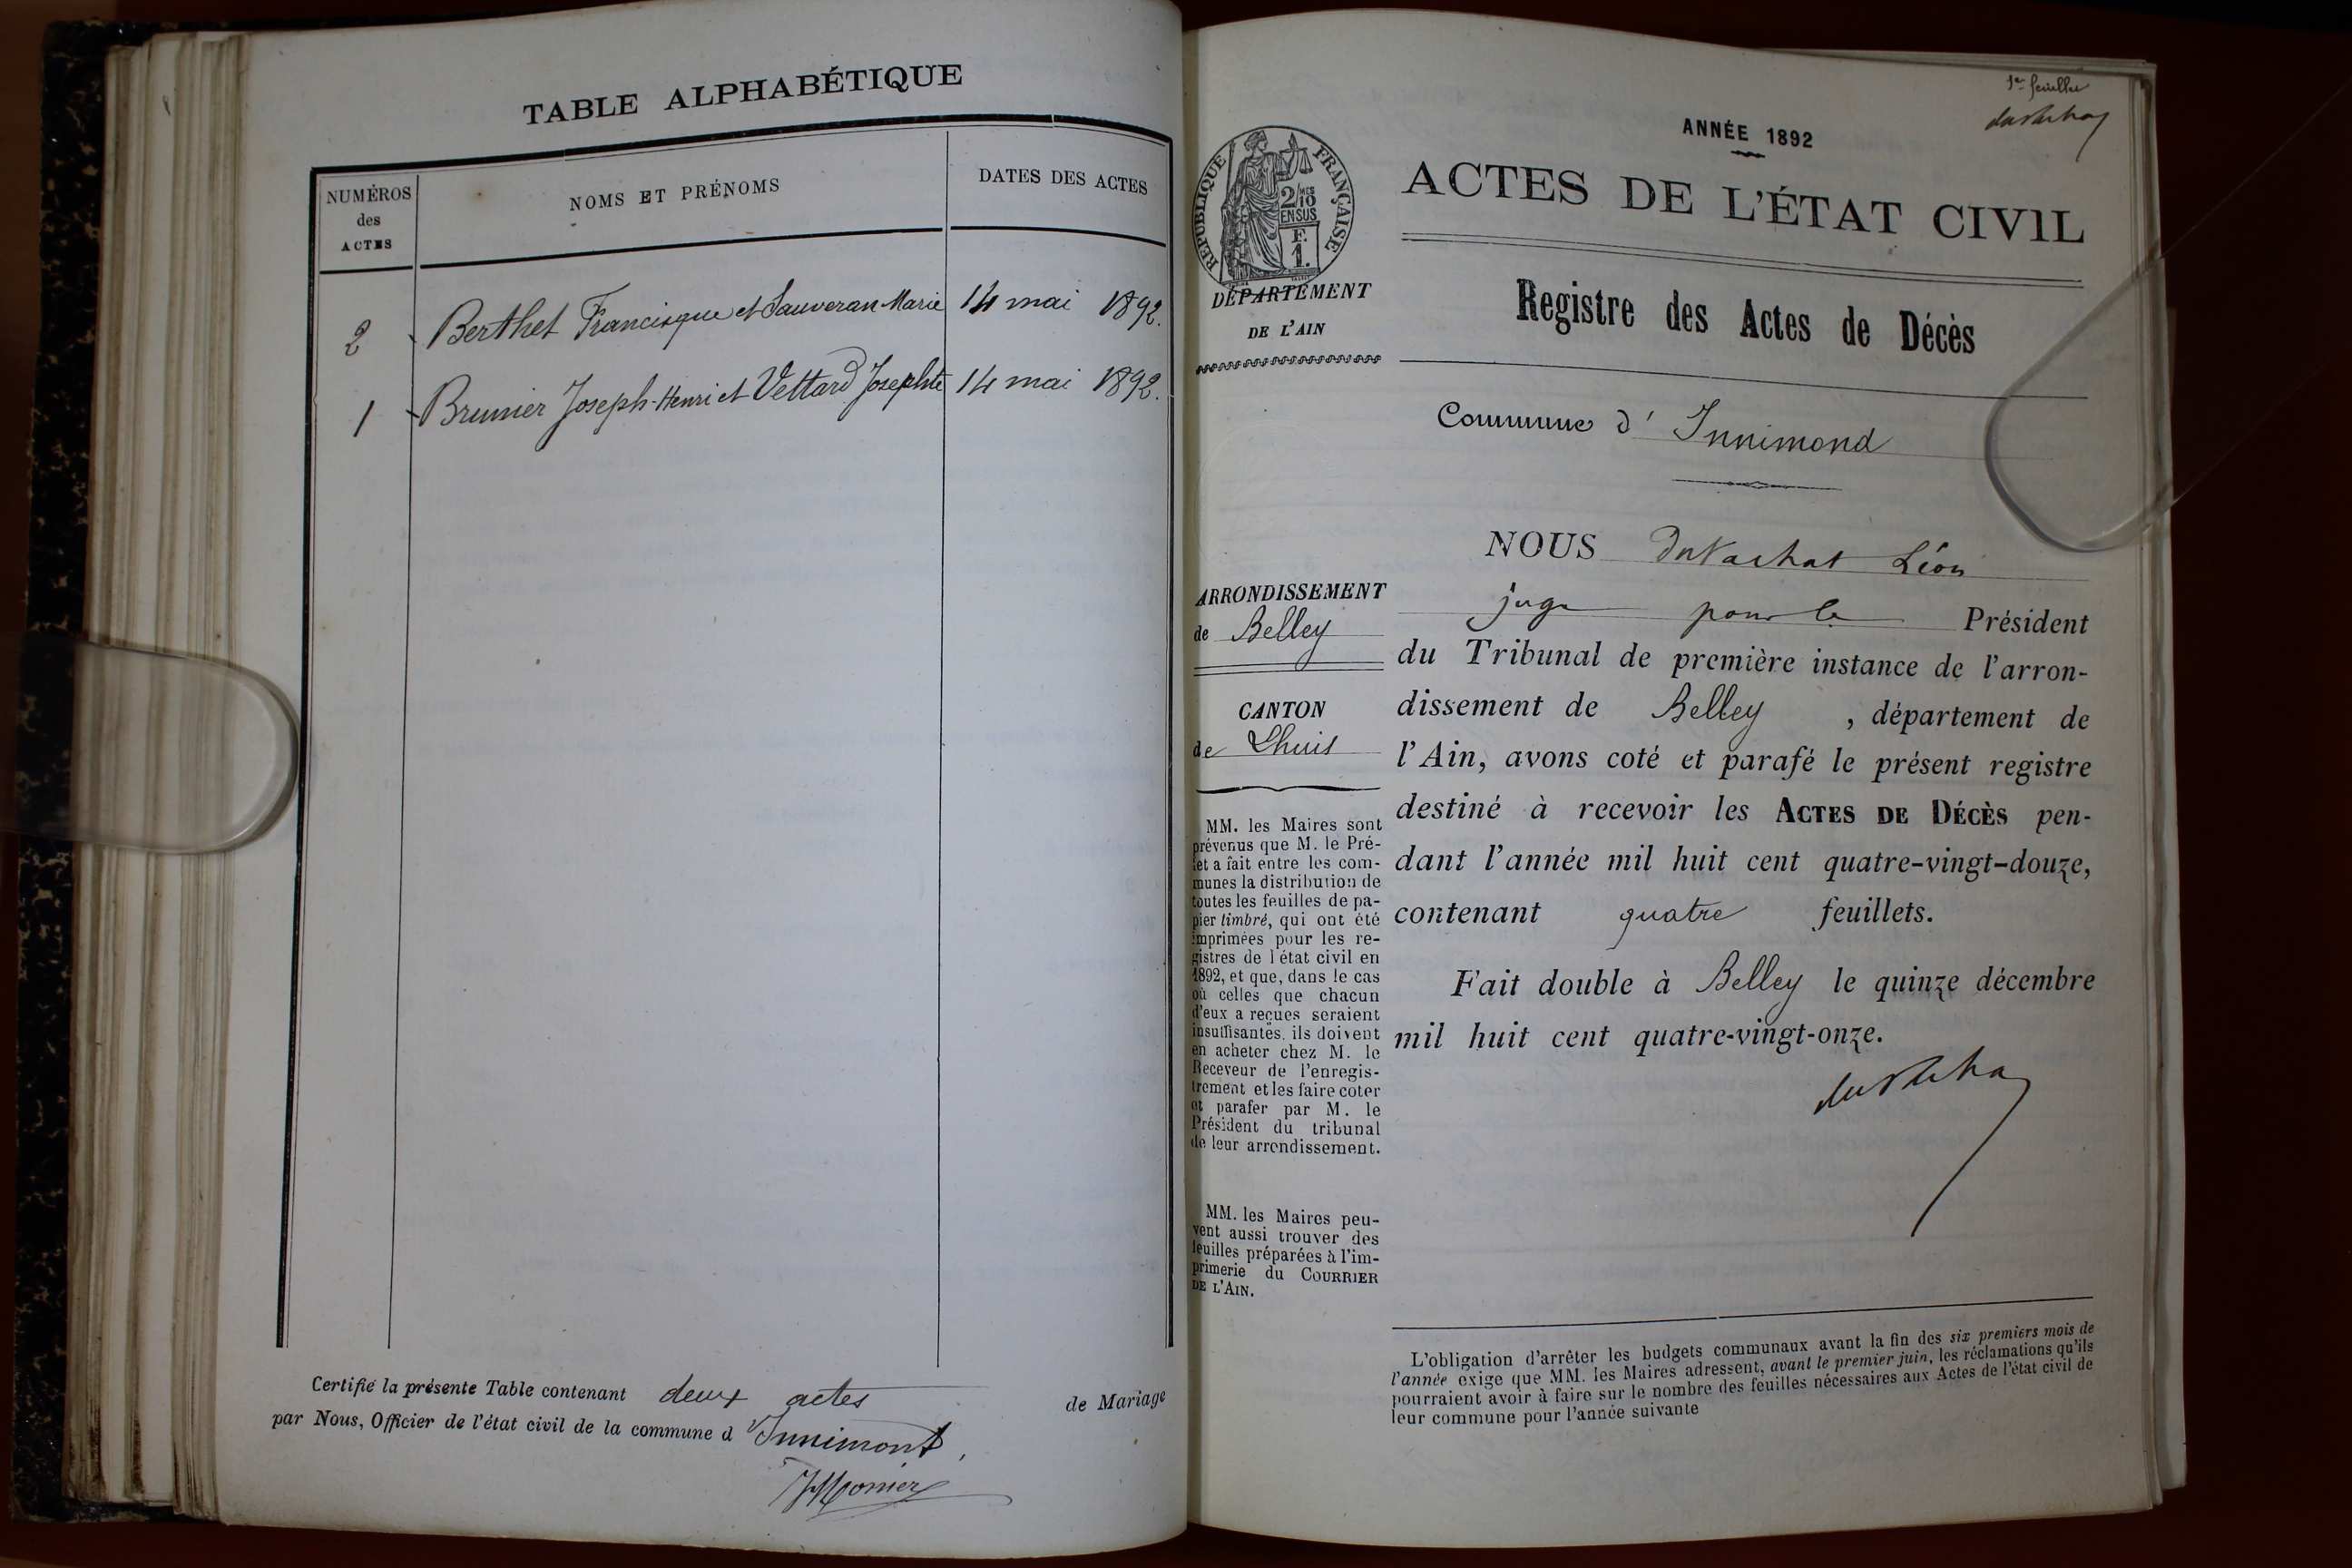 TABLE ALPHABÉTIQUE
NUMÉROS
des
ACTES
NOMS ET PRÉNOMS
DATES DES ACTES
2 Berthet Francisque et Sauveran Marie 14 mai 1892.
1 Brunier Joseph-Henri et Vettard Josephte 14 mai 1892.
Certifié la présente Table contenant deux actes de Mariage
par Nous, Officier de l'état civil de la commune d'Innimont,
1er feuillet
ANNÉE 1892
RÉPUBLIQUE FRANÇAISE
2/10
MES
EN SUS
F.
1.
DÉPARTEMENT
DE L'AIN
ACTES DE L'ÉTAT CIVIL
Registre des Actes de Décès
Commune d'Innimond
ARRONDISSEMENT
de Belley
CANTON
de Lhuis
MM. les Maires sont
prévenus que M. le Pré-
fet a fait entre les com-
munes la distribution de
toutes les feuilles de pa-
pier timbré, qui ont été
imprimées pour les re-
gistres de l'état civil en
1892, et que, dans le cas
où celles que chacun
d'eux a reçues seraient
insuffisantes, ils doivent
en acheter chez M. le
Receveur de l'enregis-
trement et les faire coter
et parafer par M. le
Président du tribunal
de leur arrondissement.
MM. les Maires peu-
vent aussi trouver des
feuilles préparées à l'im-
primerie du COURRIER
DE L'AIN.
NOUS DuVachat Léon
juge pour le Président
du Tribunal de première instance de l'arron-
dissement de Belley, département de
l'Ain, avons coté et parafé le présent registre
destiné à recevoir les ACTES DE DÉCÈS pen-
dant l'année mil huit cent quatre-vingt-douze,
contenant quatre feuillets.
Fait double à Belley le quinze décembre
mil huit cent quatre-vingt-onze.
L'obligation d'arrêter les budgets communaux avant la fin des six premiers mois de
l'année exige que MM. les Maires adressent, avant le premier juin, les réclamations qu'ils
pourraient avoir à faire sur le nombre des feuilles nécessaires aux Actes de l'état civil de
leur commune pour l'année suivante